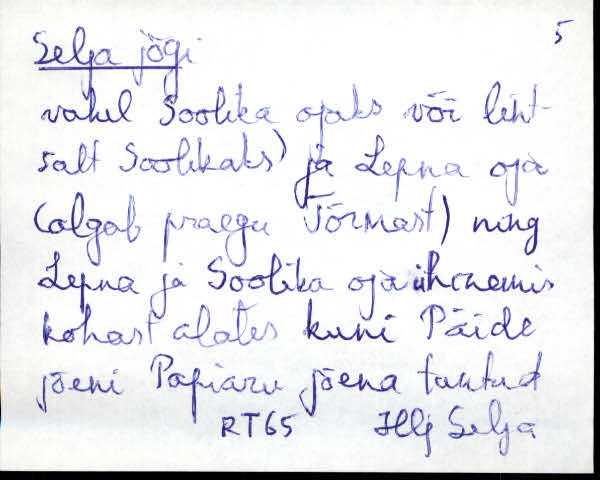 5
Selja jõgi
vahel Soolika ojaks või liht-
salt Soolikaks) ja Lepna oja
(algab praegu Tõrmast) ning
Lepna ja Soolika oja ühinemis
kohast alates kuni Päide
jõeni Papiaru jõena tuntud
RT65 Hlj Selja